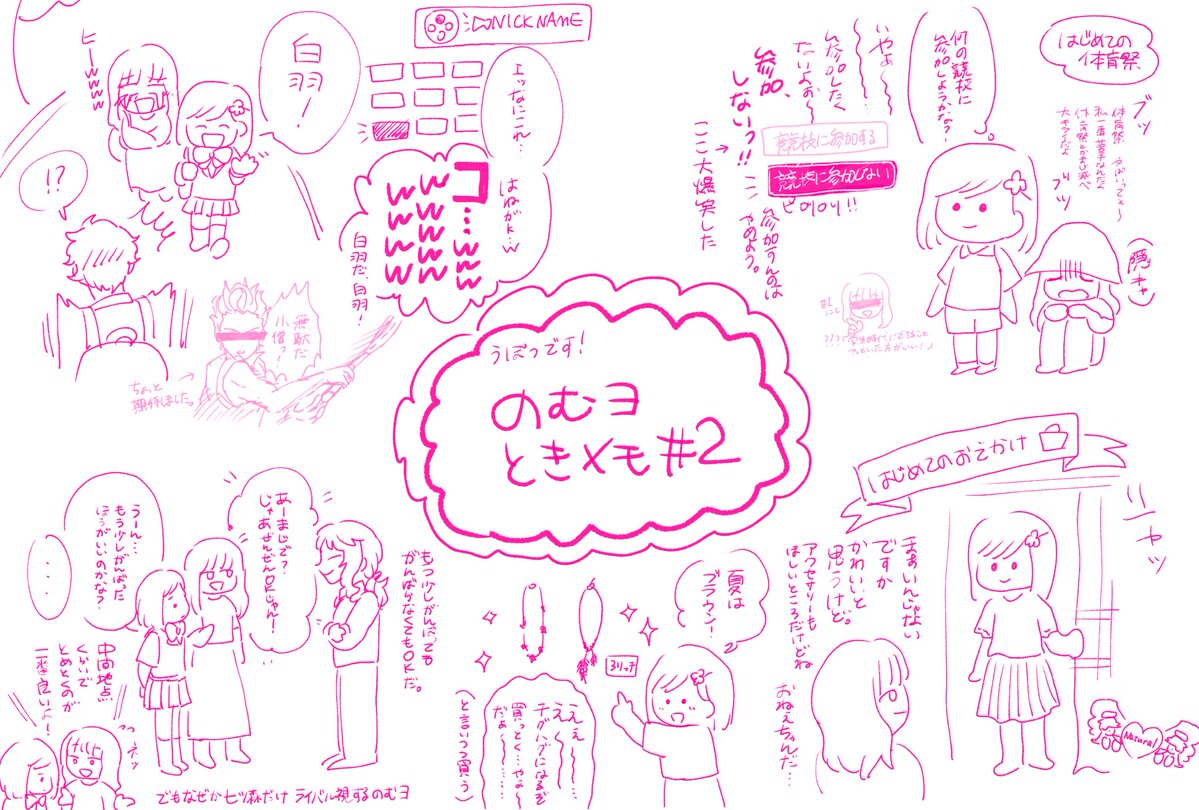 はじめての
体育祭
ブッ
ブツ
(陰キャ)
何の競技に
参加しようかな?
いやぁ〜
参加したく
ないよぉ〜
参加、
しないっ!!
競技に参加する
競技に参加しない
ピロリロリ!!
参加すんのは
やめよう。
ここ大爆笑した
NICKNAME
エッなにこれ…
はねがk…w
コ…www
wwwww
wwww
白羽だ、白羽!
白羽!
ヒーwww
!?
無駄だ
小僧っ!
ちょっと
期待しました。
うぼっです!
のむヨ
ときメモ#2
はじめてのおでかけ
ニャッ
まぁいんじゃない
ですか
かわいいと
思うけど。
アクセサリーも
ほしいところだけどね
おねぇちゃんだ…
Natural
夏は
ブラウン!
3リッチ
ええ〜
え〜
チグハグになるぞ
買っとく…やよ〜
だぁ〜
(と言いつつ買う)
もう少しがんばっても
がんばらなくてもOKだ。
あーまじで?
じゃあぜんぜんOKじゃん!
うーん…
もう少しがんばった
ほうがいいのかな?
・・・
中間地点
くらいで
とめとくのが
一番良いよ!
でもなぜか七ツ森だけ ライバル視するのむヨ